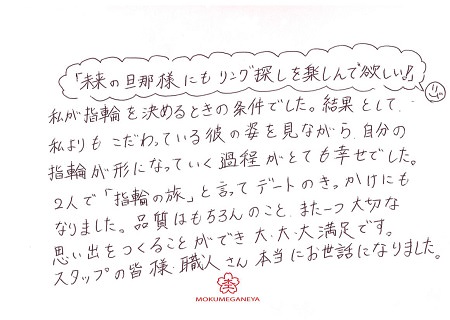 「未来の旦那様にもリング探しを楽しんで欲しい!」
私が指輪を決めるときの条件でした。結果として、
私よりもこだわっている彼の姿を見ながら、自分の
指輪が形になっていく過程がとても幸せでした。
2人で「指輪の旅」と言ってデートのきっかけにも
なりました。品質はもちろんのこと、また一つ大切な
思い出をつくることができ大・大・大満足です。
スタッフの皆様・職人さん本当にお世話になりました。
MOKUMEGANEYA